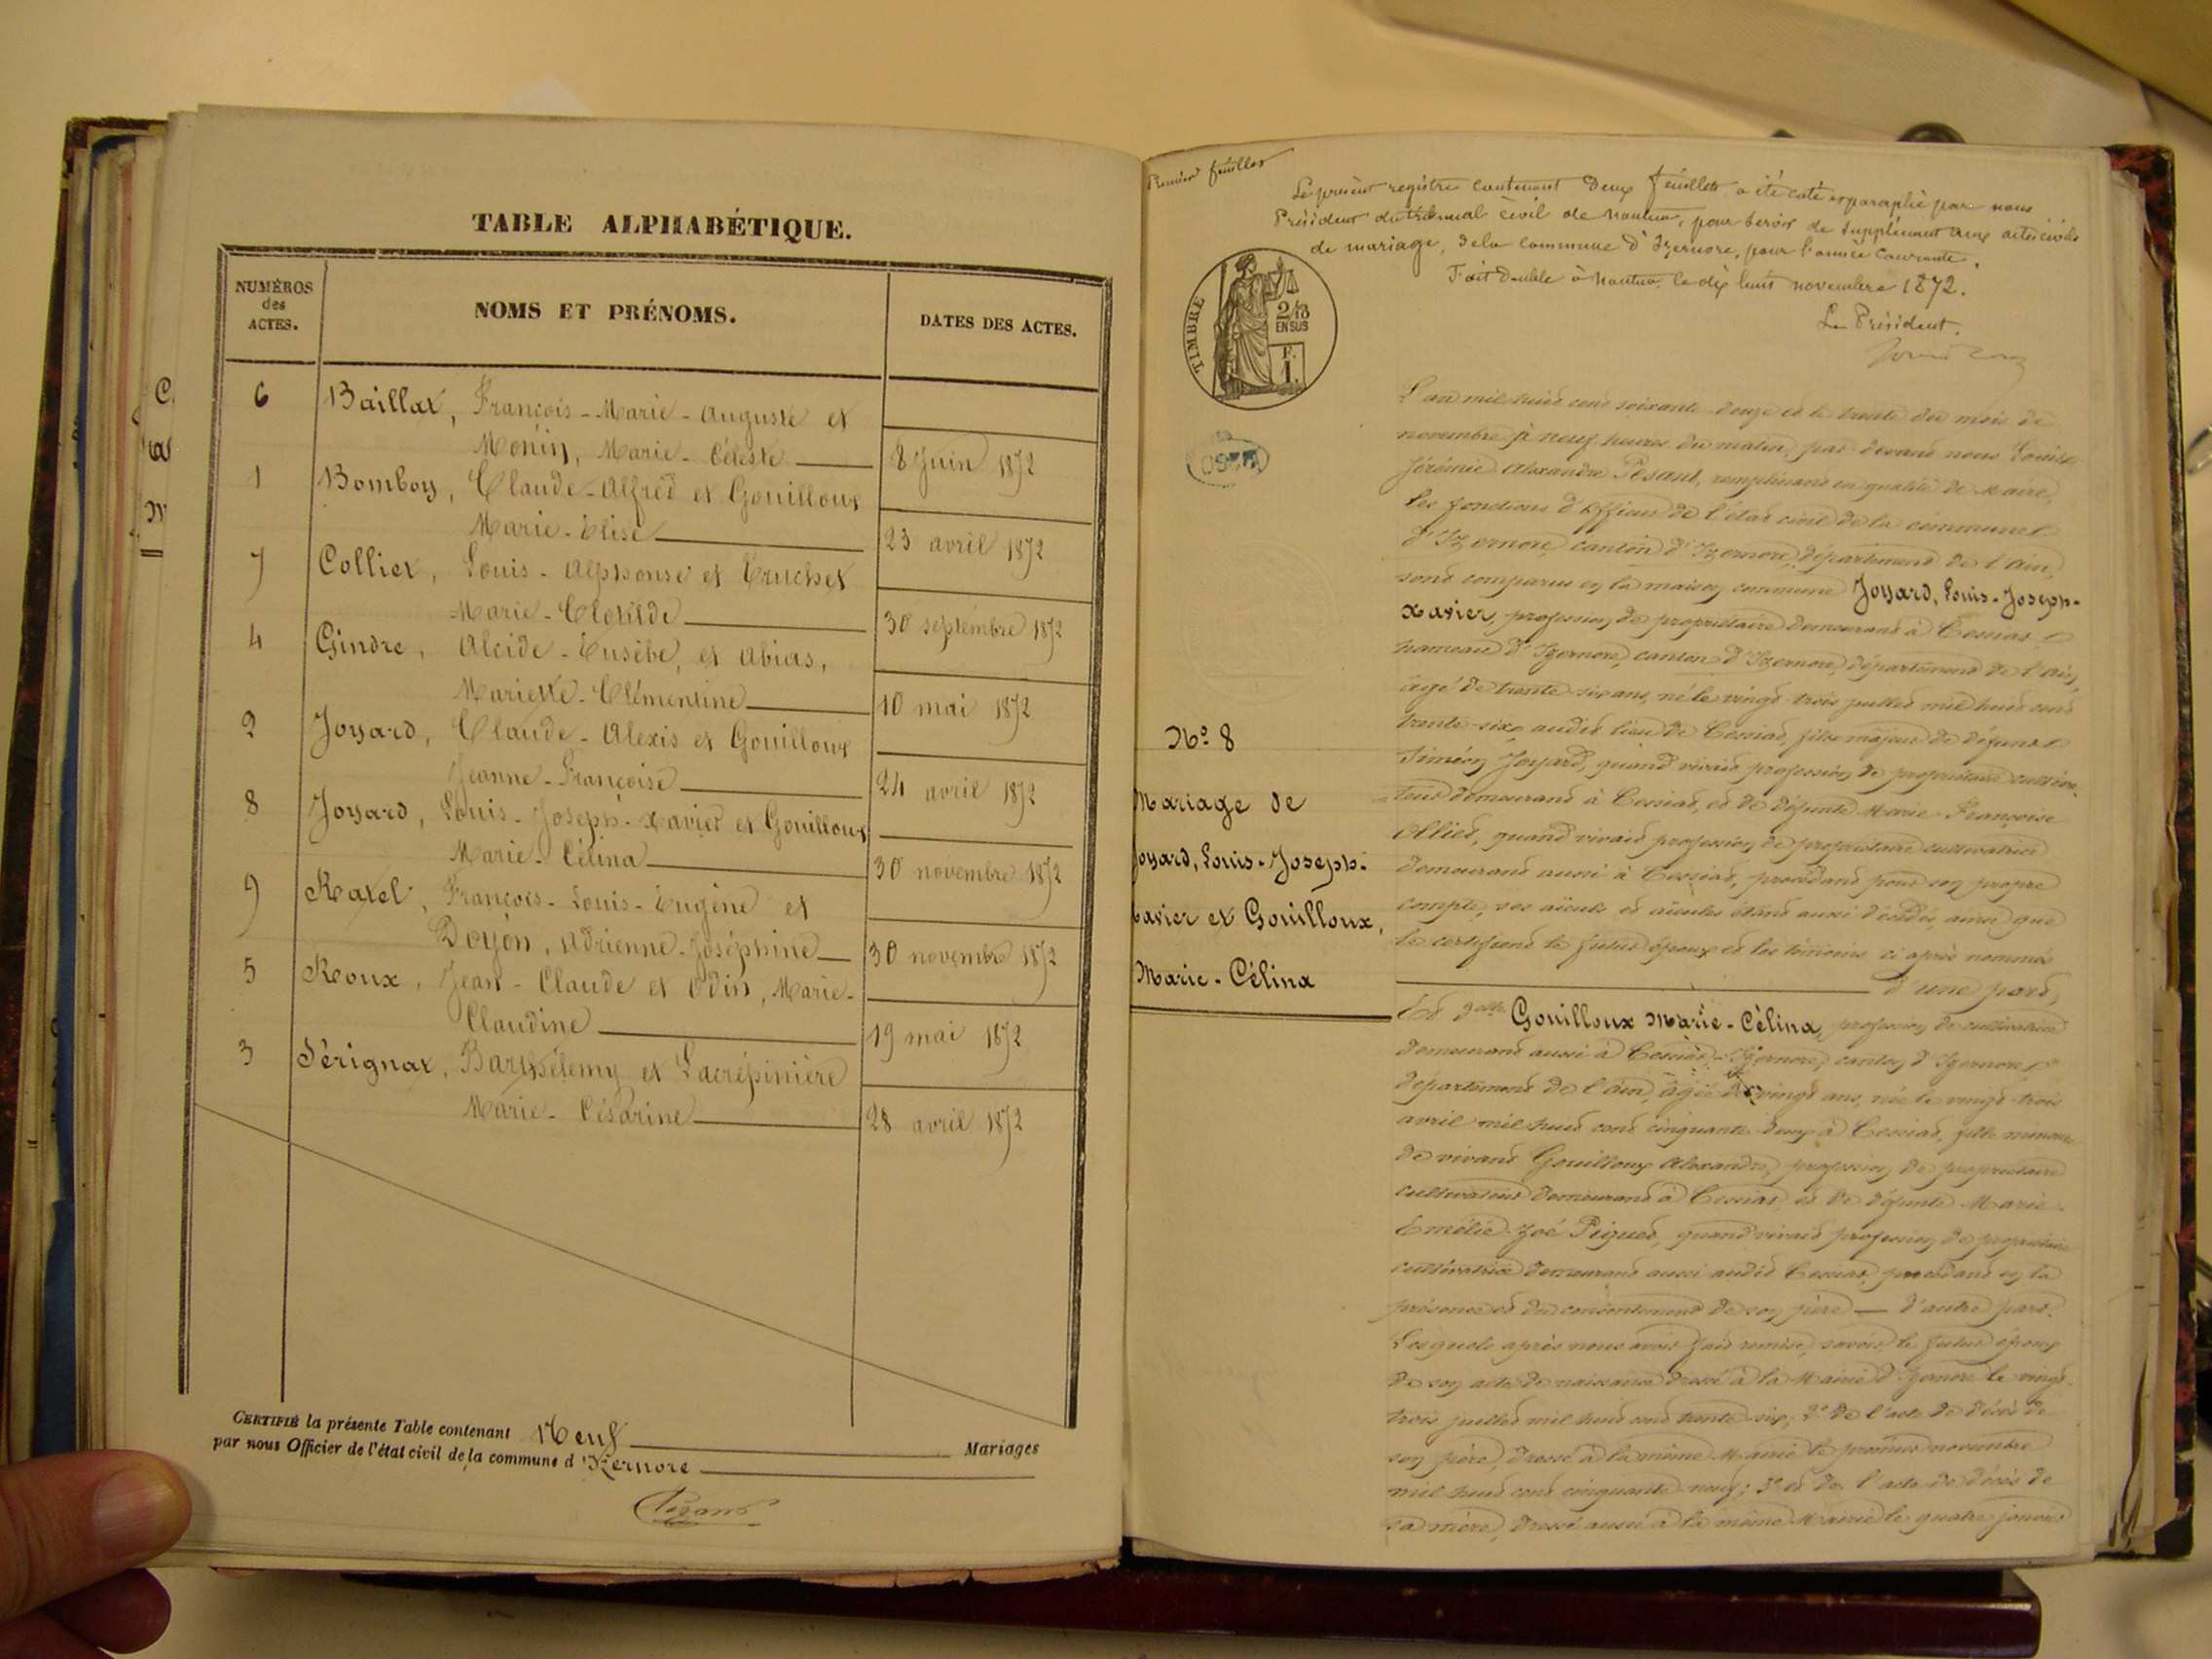 TABLE ALPHABÉTIQUE.
NUMÉROS des ACTES.
NOMS ET PRÉNOMS.
DATES DES ACTES.
6 Baillat, François-Marie-Auguste et
Monin, Marie-Céleste 8 Juin 1872
1 Bomboy, Claude-Alfred et Gouilloux
Marie-Elise 23 avril 1872
7 Collier, Louis-Alphonse et Truchet
Marie-Clotilde 30 septembre 1872
4 Gindre, Alcide-Eusèbe, et Abias,
Mariette-Clémentine 10 mai 1872
2 Joyard, Claude-Alexis et Gouilloux
Jeanne-Françoise 24 avril 1872
8 Joyard, Louis-Joseph-Xavier et Gouilloux
Marie-Célina 30 novembre 1872
9 Ratel, François-Louis-Eugène et
Doyen, Adrienne-Joséphine 30 novembre 1872
5 Roux, Jean-Claude et Odin, Marie-
Claudine 19 mai 1872
3 Sérignat, Barthélemy et Lacrépinière
Marie-Césarine 28 avril 1872
CERTIFIÉ la présente Table contenant Neuf Mariages
par nous Officier de l'état civil de la commune d'Izernore
Premier feuillet
Le présent registre contenant deux feuillets a été coté et paraphé par nous
Président du tribunal civil de Nantua, pour servir de supplément aux actes civils
de mariage, de la commune d'Izernore, pour l'année courante.
Fait double à Nantua, le dix huit novembre 1872.
Le Président.
TIMBRE
2/10
EN SUS
F.
1.
L'an mil huit cent soixante-douze et le trente du mois de
novembre à neuf heures du matin, par devant nous Louis
Jérémie Alexandre Pesant, remplissant en qualité de Maire,
les fonctions d'Officier de l'état civil de la commune
d'Izernore canton d'Izernore, département de l'Ain,
sont comparus en la maison commune Joyard, Louis-Joseph-
Xavier, profession de propriétaire demeurant à Cessiat,
hameau d'Izernore, canton d'Izernore, département de l'Ain,
âgé de trente-six ans, né le vingt-trois juillet mil huit cent
trente-six audit lieu de Cessiat, fils majeur de défunt
Siméon Joyard, quand vivait profession de propriétaire cultiva-
teur demeurant à Cessiat, et de défunte Marie Françoise
Olliet, quand vivait profession de propriétaire cultivatrice
demeurant aussi à Cessiat, procédant pour son propre
compte, ses aïeuls et aïeules étant aussi décédés, ainsi que
le certifient le futur époux et les témoins ci après nommés
d'une part,
Et Gouilloux Marie-Célina, profession de cultivatrice
demeurant aussi à Cessiat-Izernore, canton d'Izernore
département de l'Ain, âgée de vingt ans, née le vingt-trois
avril mil huit cent cinquante-deux à Cessiat, fille mineure
de vivant Gouilloux Alexandre, profession de propriétaire
cultivateur demeurant à Cessiat et de défunte Marie-
Emélie-Zoé Piquet, quand vivait profession de propriétaire
cultivatrice demeurant aussi audit Cessiat, procédant en la
présence et du consentement de son père — d'autre part.
Lesquels après nous avoir fait remise, savoir le futur époux
de son acte de naissance dressé à la Mairie d'Izernore le vingt-
trois juillet mil huit cent trente-six; 2° de l'acte de décès de
son père, dressé à la même Mairie le premier novembre
mil huit cent cinquante-neuf; 3° et de l'acte de décès de
sa mère, dressé aussi à la même Mairie le quatre janvier
N° 8
Mariage de
Joyard, Louis-Joseph-
Xavier et Gouilloux,
Marie-Célina